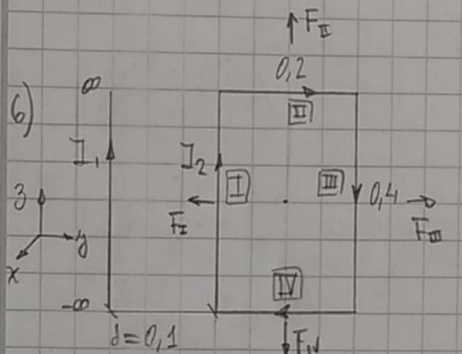 F_II
0,2
6)
∞
II
I_1
I_2
I
III
0,4
3
F_I
F_III
y
x
IV
-∞
d=0,1
F_IV